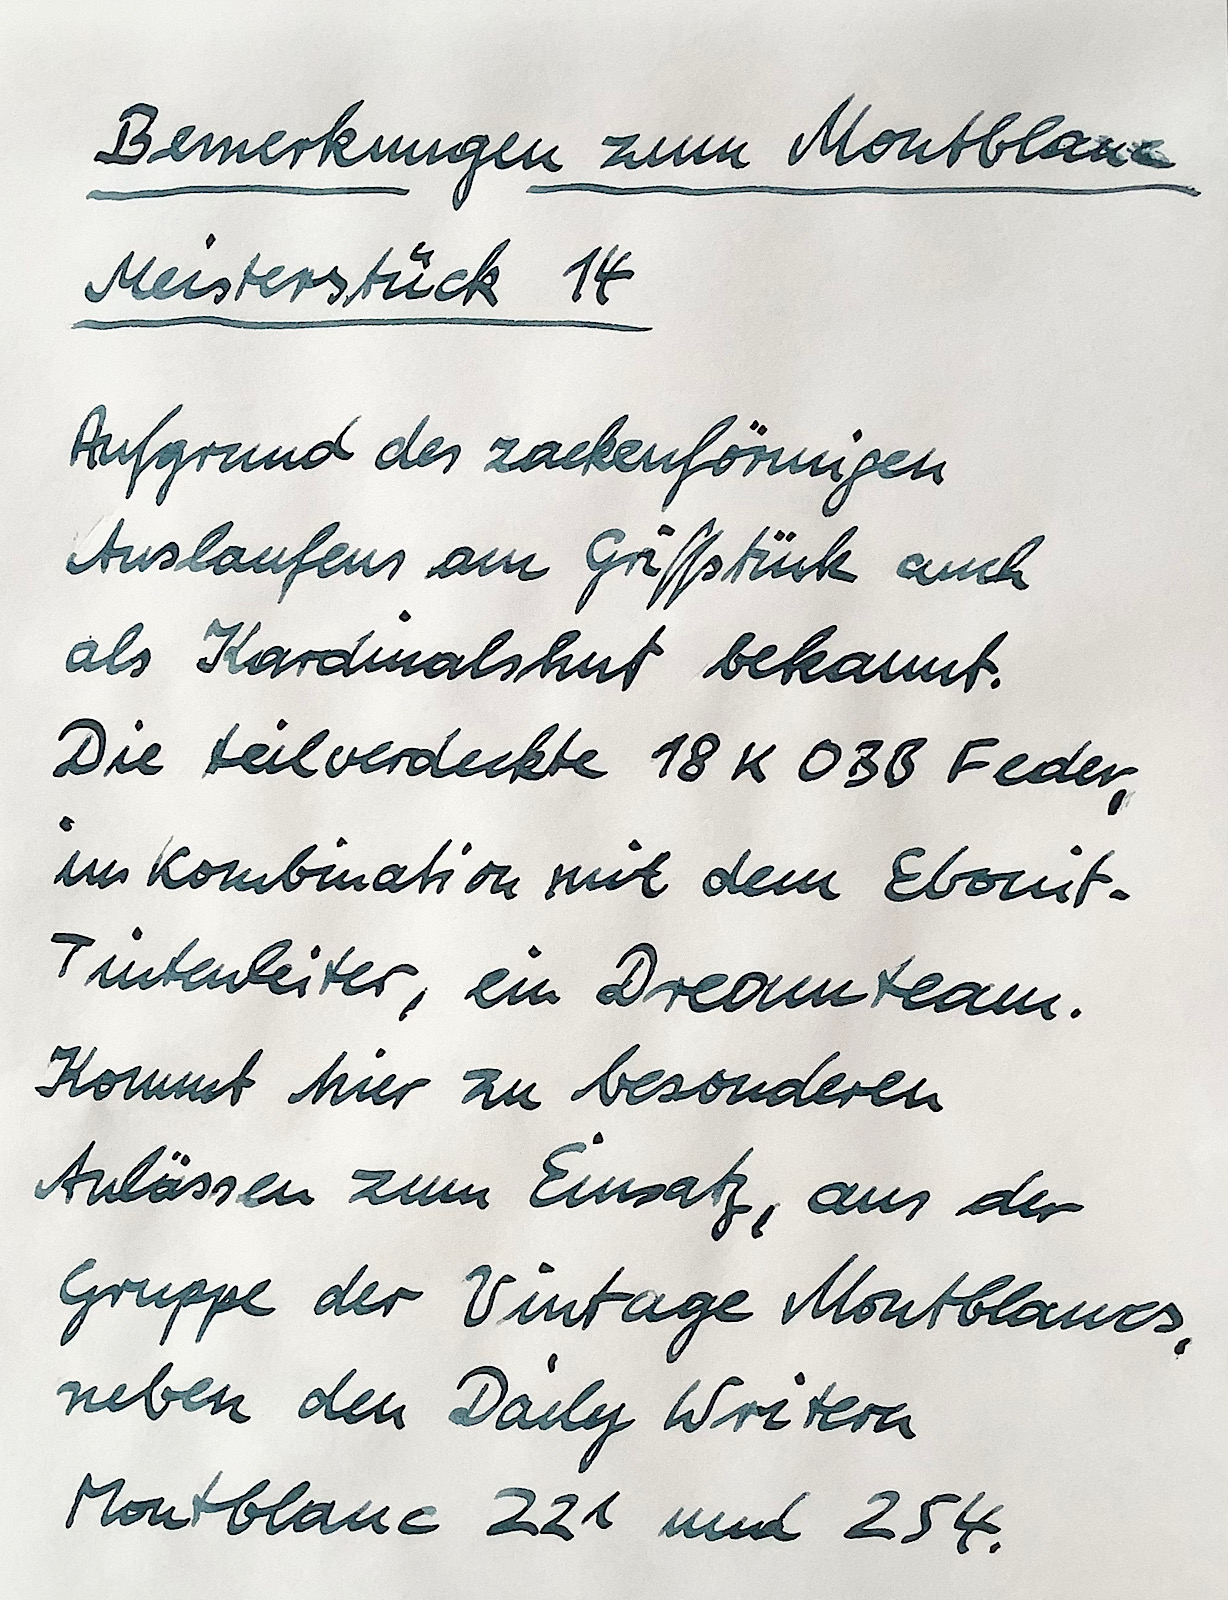 Bemerkungen zum Montblanc
Meisterstück 14
Aufgrund des zackenförmigen
Auslaufens am Griffstück auch
als Kardinalshut bekannt.
Die teilverdeckte 18 K OBB Feder,
in Kombination mit dem Ebonit-
Tintenleiter, ein Dreamteam.
Kommt hier zu besonderen
Anlässen zum Einsatz, aus der
Gruppe der Vintage Montblancs,
neben den Daily Writern
Montblanc 221 und 254.